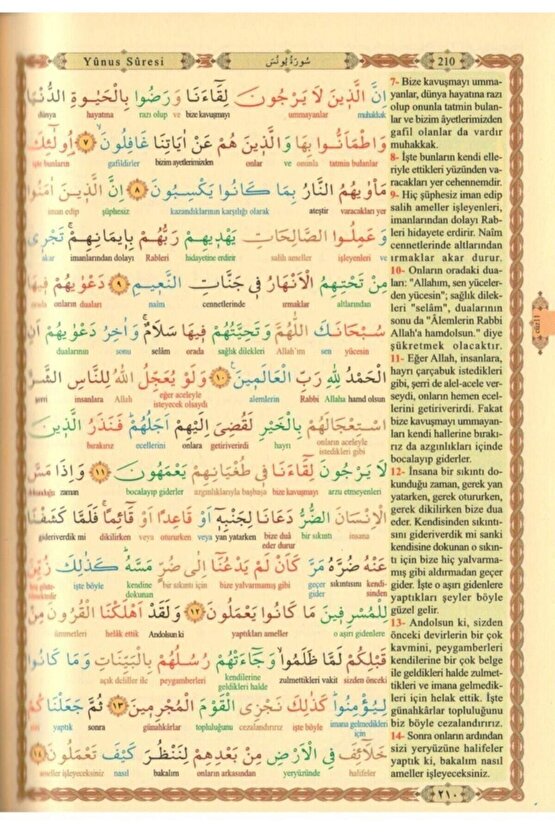 Yûnus Sûresi
سُورَةُ يُونُسَ
210
اِنَّ الَّذٖينَ لَا يَرْجُونَ لِقَٓاءَنَا وَرَضُوا بِالْحَيٰوةِ الدُّنْيَا
dünya hayatına razı olup ve bize kavuşmayı ummayanlar muhakkak
وَاطْمَاَنُّوا بِهَا وَالَّذٖينَ هُمْ عَنْ اٰيَاتِنَا غَافِلُونَ ﴿٧﴾ اُو۬لٰٓئِكَ
işte bunların gafildirler bizim ayetlerimizden onlar ve onunla tatmin bulanlar
مَأْوٰيهُمُ النَّارُ بِمَا كَانُوا يَكْسِبُونَ ﴿٨﴾ اِنَّ الَّذٖينَ اٰمَنُوا
iman edip şüphesiz kazandıklarının karşılığı olarak ateştir varacakları yer
وَعَمِلُوا الصَّالِحَاتِ يَهْدٖيهِمْ رَبُّهُمْ بِاٖيمَانِهِمْ تَجْرٖى
akar imanlarından dolayı Rableri hidayetine erdirir salih ameller işleyenleri ve
مِنْ تَحْتِهِمُ الْاَنْهَارُ فٖى جَنَّاتِ النَّعٖيمِ ﴿٩﴾ دَعْوٰيهُمْ فٖيهَا
orada onların duaları naîm cennetlerinde ırmaklar altlarından
سُبْحَانَكَ اللّٰهُمَّ وَتَحِيَّتُهُمْ فٖيهَا سَلَامٌ وَاٰخِرُ دَعْوٰيهُمْ اَنِ
dualarının sonu selâm orada sağlık dilekleri Allah'ım sen yücesin
الْحَمْدُ لِلّٰهِ رَبِّ الْعَالَمٖينَ ﴿١٠﴾ وَلَوْ يُعَجِّلُ اللّٰهُ لِلنَّاسِ الشَّرَّ
şerri insanlara Allah eğer aceleyle isteyecek olsaydı alemlerin Rabbi Allaha hamd olsun
اسْتِعْجَالَهُمْ بِالْخَيْرِ لَقُضِىَ اِلَيْهِمْ اَجَلُهُمْ فَنَذَرُ الَّذٖينَ
bırakırız ecellerini onlara getiriverirdi hayrı onların aceleyle istedikleri gibi
لَا يَرْجُونَ لِقَٓاءَنَا فٖى طُغْيَانِهِمْ يَعْمَهُونَ ﴿١١﴾ وَاِذَا مَسَّ
dokunduğu zaman bocalayıp giderler azgınlıklarıyla başbaşa bize kavuşmayı arzu etmeyenleri
الْاِنْسَانَ الضُّرُّ دَعَانَا لِجَنْبِهٖ اَوْ قَاعِدًا اَوْ قَٓائِمًا فَلَمَّا كَشَفْنَا
gideriverdik mi dikilirken veya otururken veya yan yatarken bize duâ eder durur bir sıkıntı insana
عَنْهُ ضُرَّهُ مَرَّ كَاَنْ لَمْ يَدْعُنَا اِلٰى ضُرٍّ مَسَّهُ كَذٰلِكَ زُيِّنَ
işte böyle kendine dokunan bir sıkıntı için bize yalvarmamış gibi geçer gider sıkıntısını kendisinden
لِلْمُسْرِفٖينَ مَا كَانُوا يَعْمَلُونَ ﴿١٢﴾ وَلَقَدْ اَهْلَكْنَا الْقُرُونَ مِنْ
ümmetleri helâk ettik Andolsun ki yaptıkları ameller o aşırı gidenlere
قَبْلِكُمْ لَمَّا ظَلَمُوا وَجَٓاءَتْهُمْ رُسُلُهُمْ بِالْبَيِّنَاتِ وَمَا كَانُوا
açık deliller ile peygamberleri kendilerine geldikleri halde zulmettikleri vakit sizden önceki
لِيُؤْمِنُوا كَذٰلِكَ نَجْزِى الْقَوْمَ الْمُجْرِمٖينَ ﴿١٣﴾ ثُمَّ جَعَلْنَاكُمْ
sizi yaptık sonra günahkârlar topluluğunu cezalandırırız işte böyle imana gelmedikleri için
خَلَٓائِفَ فِى الْاَرْضِ مِنْ بَعْدِهِمْ لِنَنْظُرَ كَيْفَ تَعْمَلُونَ ﴿١٤﴾
ameller işleyeceksiniz nasıl bakalım onların arkasından yeryüzünde halifeler
7- Bize kavuşmayı umma-
yanlar, dünya hayatına razı
olup onunla tatmin bulan-
lar ve bizim âyetlerimizden
gafil olanlar da vardır
muhakkak.
8- İşte bunların kendi elle-
riyle ettikleri yüzünden va-
racakları yer cehennemdir.
9- Hiç şüphesiz iman edip
salih ameller işleyenleri,
imanlarından dolayı Rab-
leri hidayete erdirir. Naîm
cennetlerinde altlarından
ırmaklar akar durur.
10- Onların oradaki dua-
ları: "Allahım, sen yüceler-
den yücesin"; sağlık dilek-
leri "selâm", dualarının
sonu da "Âlemlerin Rabbi
Allah'a hamdolsun." diye
şükretmek olacaktır.
11- Eğer Allah, insanlara,
hayrı çarçabuk istedikleri
gibi, şerri de alel-acele ver-
seydi, onların hemen ecel-
lerini getiriverirdi. Fakat
bize kavuşmayı ummayan-
ları kendi hallerine bırakı-
rız da azgınlıkları içinde
bocalayıp giderler.
12- İnsana bir sıkıntı do-
kunduğu zaman, gerek yan
yatarken, gerek otururken,
gerek dikilirken bize dua
eder. Kendisinden sıkıntı-
sını gideriverdik mi sanki
kendisine dokunan o sıkın-
tı için bize hiç yalvarma-
mış gibi aldırmadan geçer
gider. İşte o aşırı gidenlere
yaptıkları şeyler böyle
güzel gelir.
13- Andolsun ki, sizden
önceki devirlerin bir çok
kavmini, peygamberleri
kendilerine bir çok belge
ile geldikleri halde zulmet-
tikleri ve imana gelmedik-
leri için helak ettik. İşte
günahkârlar topluluğunu
biz böyle cezalandırırız.
14- Sonra onların ardından
sizi yeryüzüne halifeler
yaptık ki, bakalım nasıl
ameller işleyeceksiniz.
cüz11
٢١٠